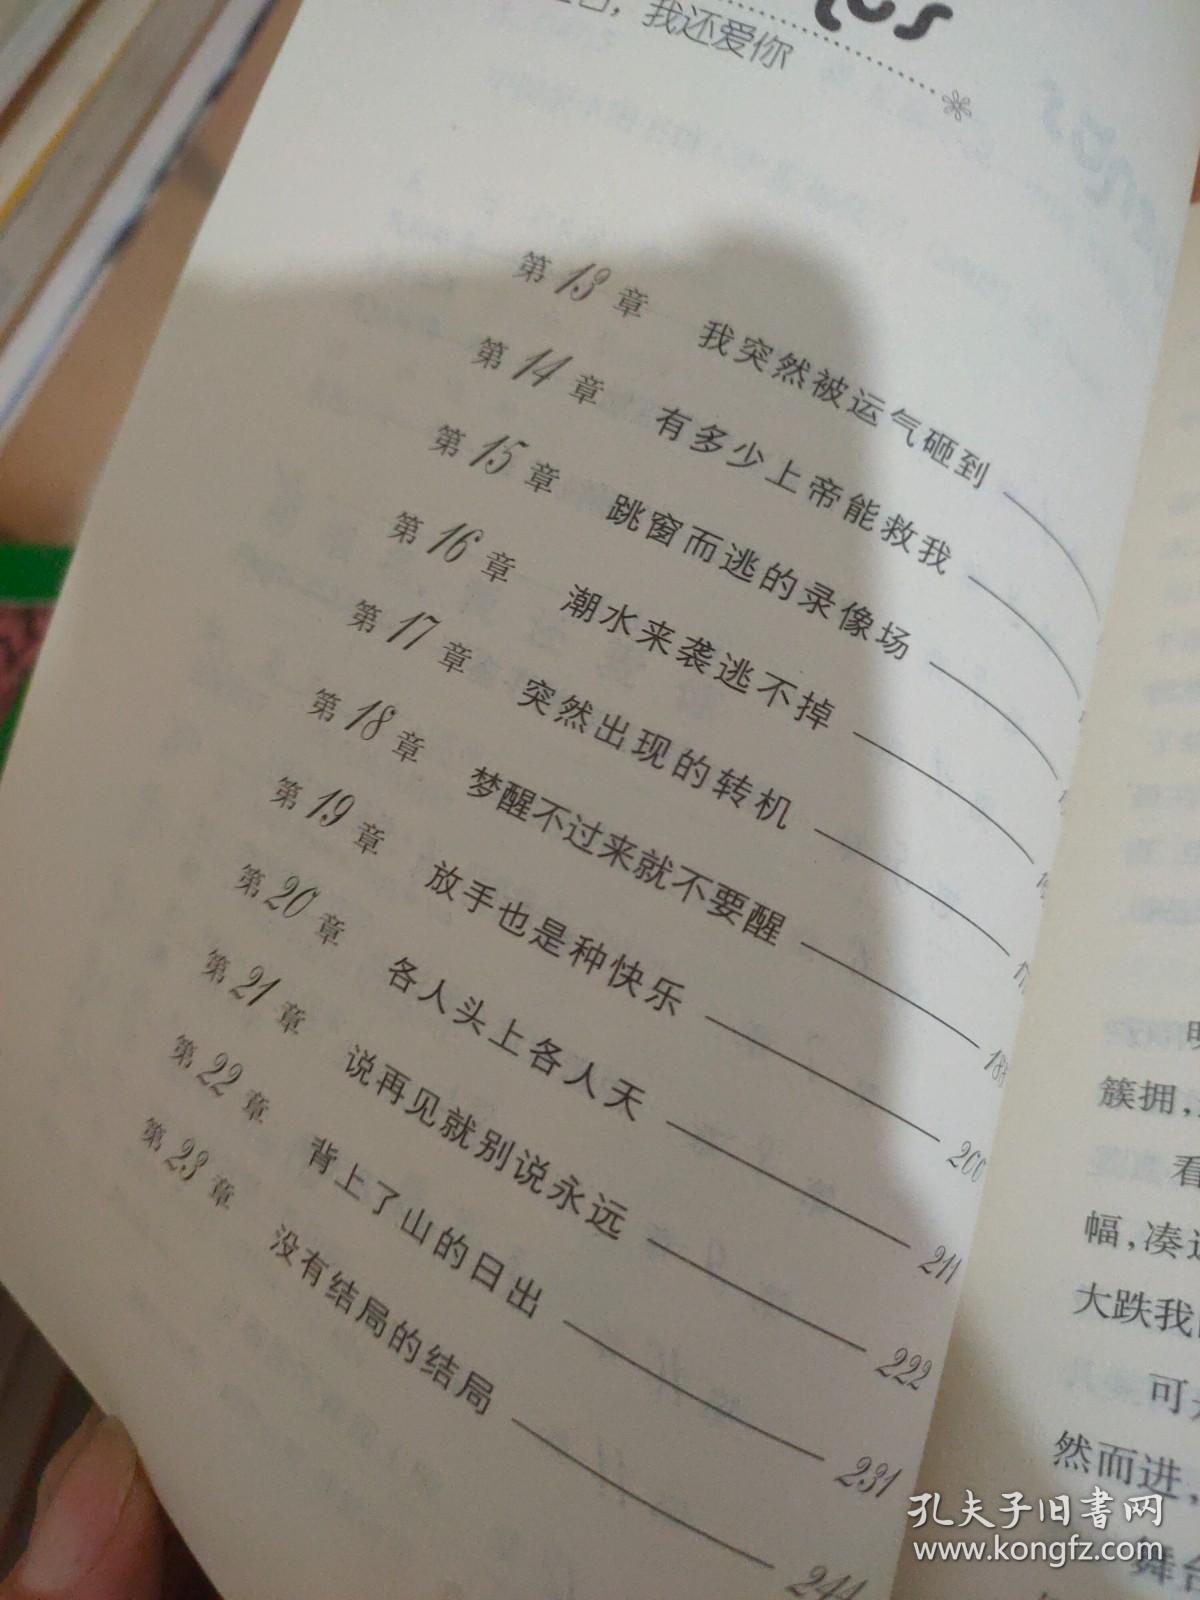 ，我还爱你
第13章 我突然被运气砸到
第14章 有多少上帝能救我
第15章 跳窗而逃的录像场
第16章 潮水来袭逃不掉
第17章 突然出现的转机
第18章 梦醒不过来就不要醒
第19章 放手也是种快乐 200
第20章 各人头上各人天 211
第21章 说再见就别说永远 222
第22章 背上了山的日出 231
第23章 没有结局的结局 244
簇拥，
看
幅，凑
大跌我
可
然而进，
舞台
孔夫子旧书网
www.kongfz.com